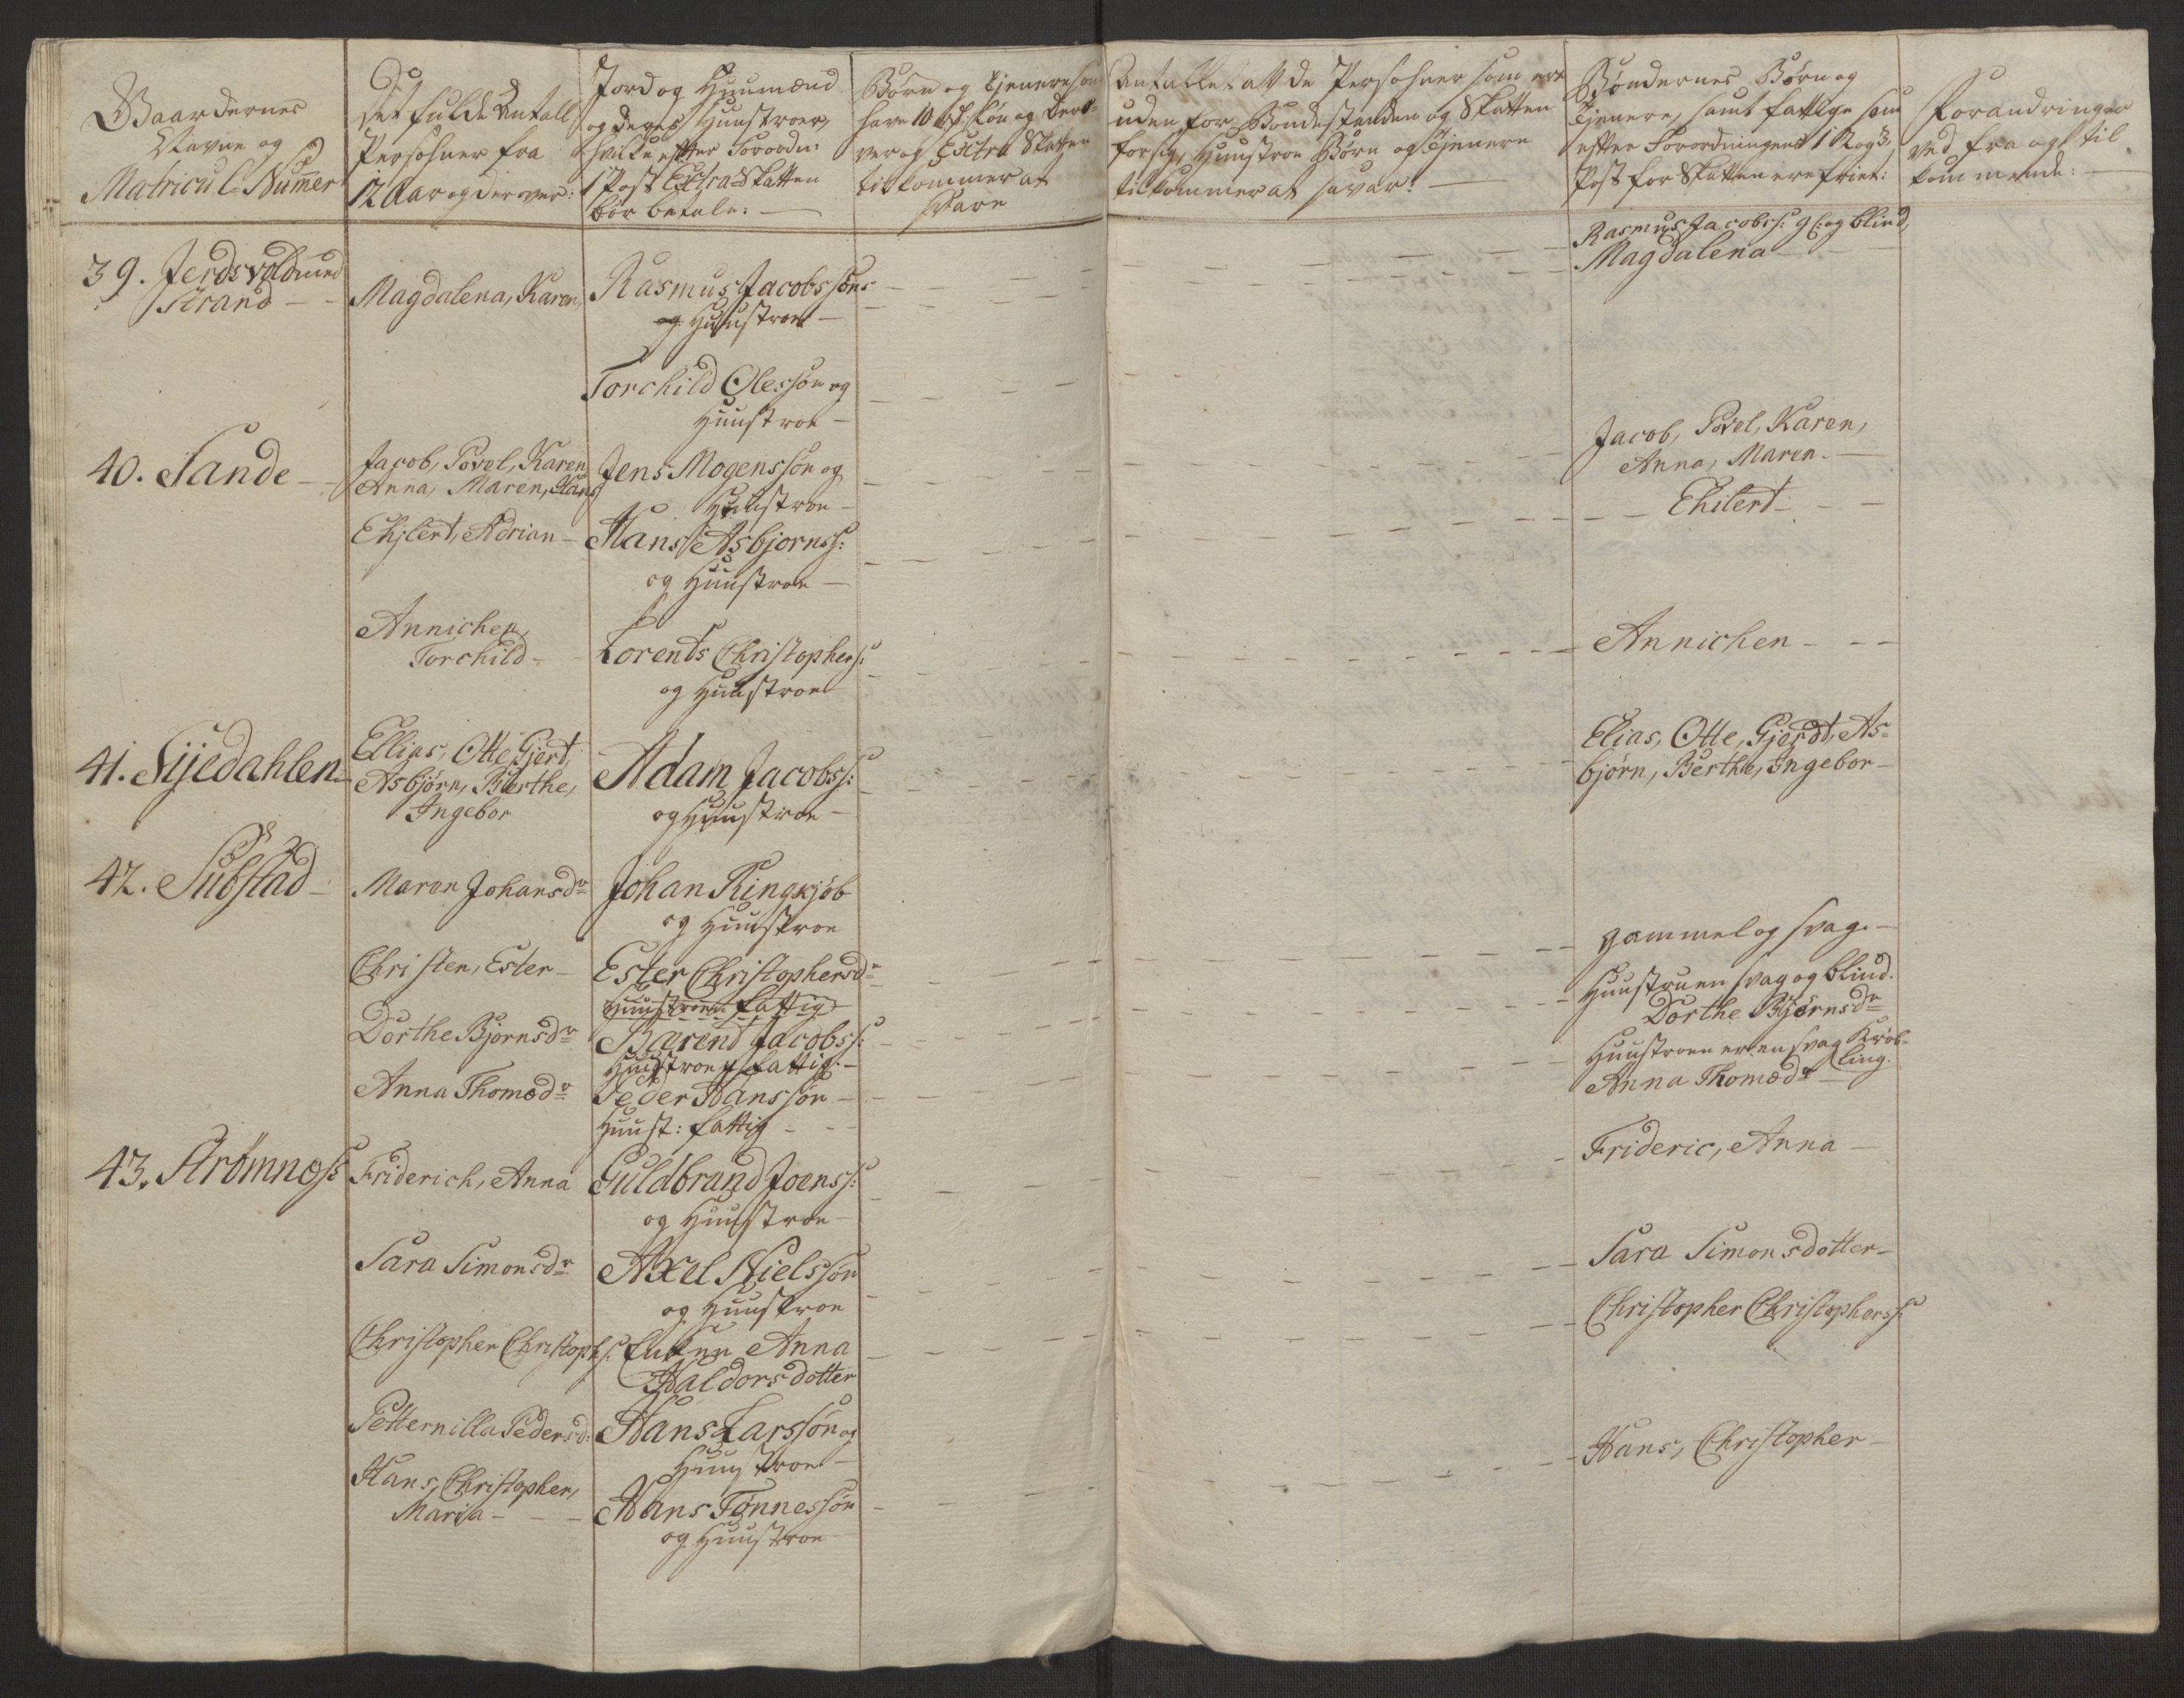 Gaardernes
Navne og
Matricul Nummer
Det fulde Antall
Persohner fra
12 Aar og derover:
Jord og Huusmænd
og deres Huustroer,
hvilke efter Forordn:
1 Post Extra Skatten
bør betale: —
Børn og Tjenere som
have 10 rd. Løn og der-
over og Extra Skatten
tilkommer at
svare
Antallet af de Persohner som ere
uden for Bondestanden og Skatten
for sig, Huustroe Børn og Tjenere
tilkommer at svare: —
Bøndernes Børn og
Tjenere, samt fattige som
efter Forordningens 1 og 3
Post for Skatten ere friet:
Forandringer
ved fra og til
kommende: —
39. Jerdsvold med
Strand — -
Magdalena, Karen,
Rasmus Jacobssøn
og Huustroe —
Rasmus Jacobss: gl: og blind,
Magdalena —
Torchild Olessøn og
Huustroe —
40. Sande —
Jacob, Povel, Karen
Anna, Maren, Hans
Jens Mogenssøn og
Huustroe —
Jacob, Povel, Karen,
Anna, Maren. —
Ehlert, Adrian —
Hans Asbjornss:
og Huustroe —
Ehlert — -
Annichen,
Torchild -
Lorents Christophers:
og Huustroe
Annichen - - -
41. Nijedahlen
Ellias, Otte, Gjert,
Asbjørn, Berthe,
Ingebor
Adam Jacobss:
og Huustroe —
Elias, Otte, Gjerdt, As-
bjørn, Berthe, Ingebor —
42. Substad —
Maren Johansdr
Johan Ringkjøb
og Huustroe
gammel og svag. —
Christen, Ester —
Ester Christophersdr
Huustroen fattig
Huustruen svag og blind.
Dorthe Bjørnsdr
Dorthe Bjornsdr
Barend Jacobss:
Huustroe fattig. —
Huustroen er en svag Krøb-
ling.
Anna Thomædr
Peder Hanssøn —
Huust: fattig - -
Anna Thomædr —
43. Strømnæs
Friderich, Anna
Guldbrand Joenss:
og Huustroe —
Frideric, Anna —
Sara Simonsdr
Axel Nielssøn
og Huustroe
Sara Simonsdotter —
Christopher Christophs:
Enken Anna
Haldorsdotter
Christopher Christopherss:
Petternilla Pedersd:
Hans Larssøn og
Huustroe —
Hans, Christopher,
Maria - - -
Hans Tønnessøn
og Huustroe
Hans, Christopher —